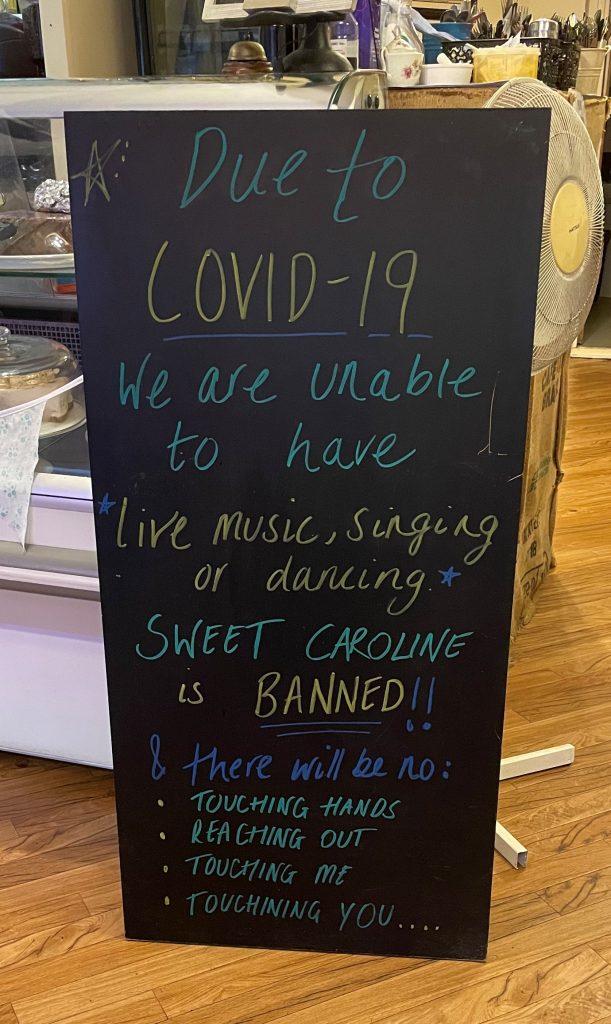 Due to
COVID-19
We are unable
to have
live music, singing
or dancing.
SWEET CAROLINE
is BANNED!!
& there will be no:
• TOUCHING HANDS
• REACHING OUT
• TOUCHING ME
• TOUCHINING YOU....